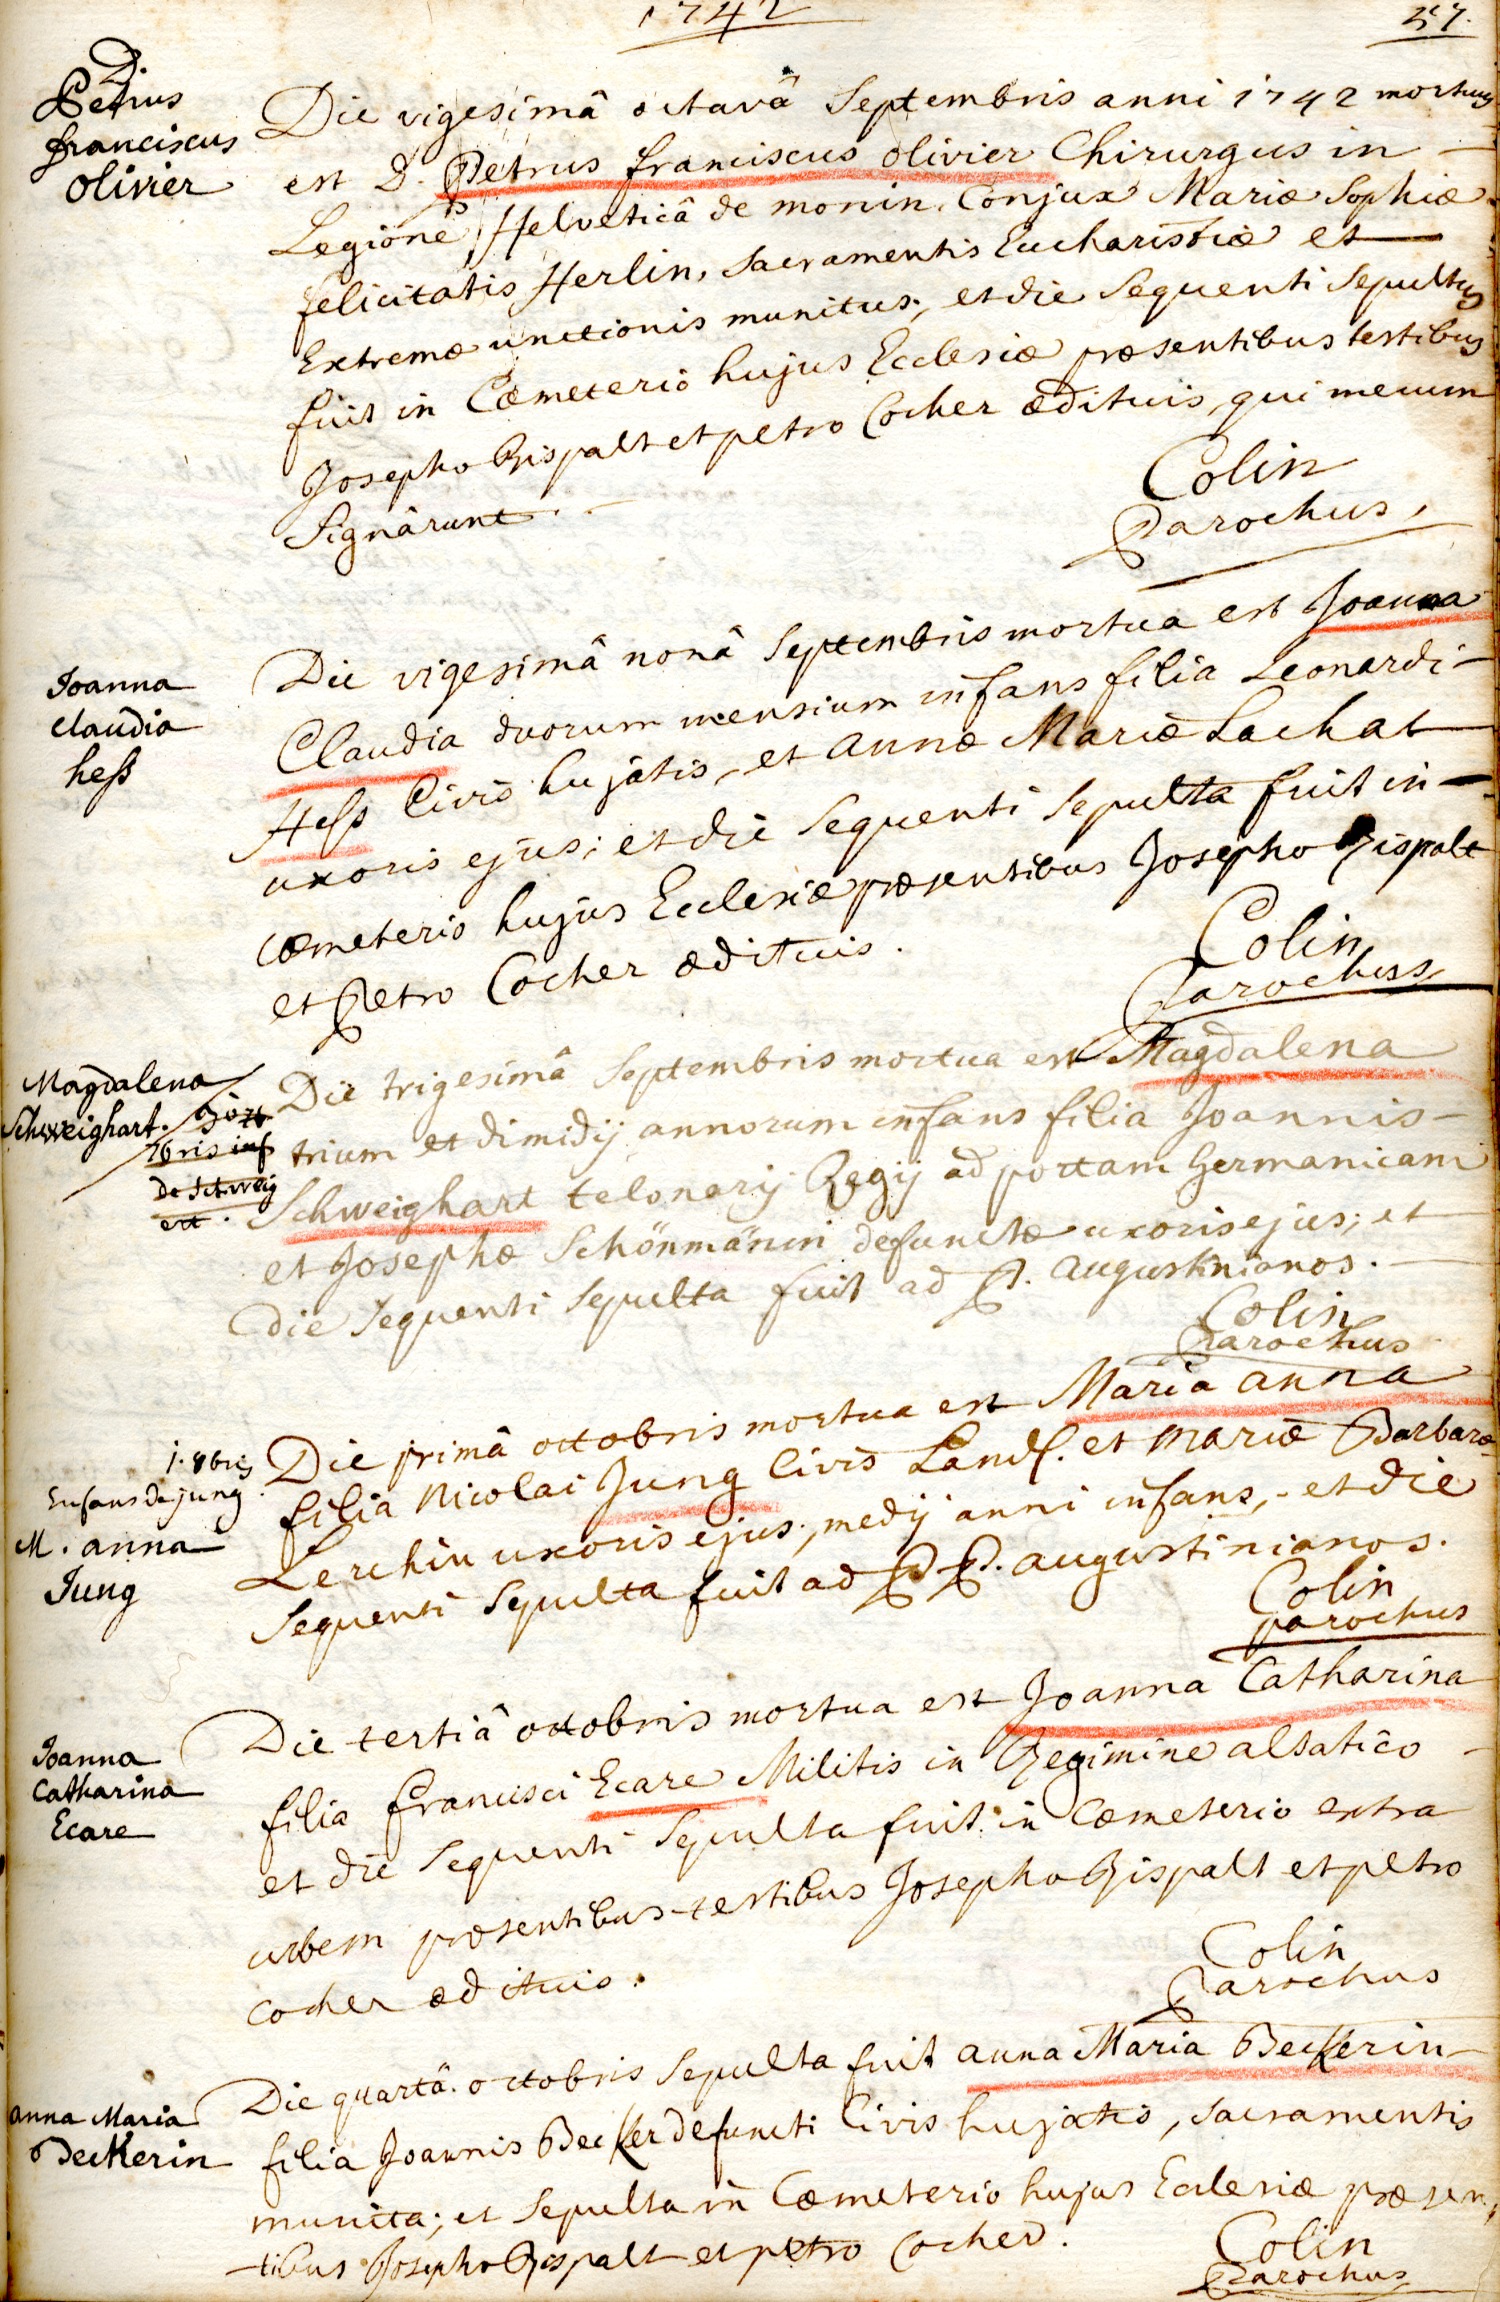 1742
57.
D.
Petrus
franciscus
olivier
Die vigesimâ octavâ Septembris anni 1742 mortuus
est D. Petrus franciscus olivier Chirurgus in
Legione Helveticâ de monin. Conjux Mariæ Sophiæ
felicitatis Herlin, sacramentis Eucharistiæ et
Extremæ unctionis munitus, et die Sequenti Sepultus
fuit in Cœmeterio hujus Ecclesiæ præsentibus testibus
Josepho Rispalt et petro Cocher ædituis, qui mecum
Signârunt.
Colin
Parochus,
Joanna
claudia
heß
Die vigesimâ nonâ Septembris mortua est Joanna
Claudia duorum mensium infans filia Leonardi
Heß Civis hujatis, et annæ Mariæ Lachat
uxoris ejus; et die Sequenti Sepulta fuit in
cœmeterio hujus Ecclesiæ præsentibus Josepho Rispalt
et Petro Cocher ædituis.
Colin
Parochus,
Magdalena
Schweighart.
30 7bris inf
de Schweig
ert.
Die trigesimâ Septembris mortua est Magdalena
trium et dimidij annorum infans filia Joannis
Schweighart telonarij Regij ad portam Germanicam
et Josephæ Schönmänin defunctæ uxoris ejus; et
die Sequenti Sepulta fuit ad P. augustinianos.
Colin
Parochus
1. 8bris
Enfans de jung
M. anna
Jung
Die primâ octobris mortua est Maria anna
filia Nicolai Jung Civis Land. et Mariæ Barbaræ
Lerchin uxoris ejus, medij anni infans, et die
Sequenti Sepulta fuit ad P P. augustinianos.
Colin
parochus
Joanna
Catharina
Ecare
Die tertiâ octobris mortua est Joanna Catharina
filia francisci Ecare Militis in Regimine alsatico
et die Sequenti Sepulta fuit in Cœmeterio extra
urbem præsentibus testibus Josepho Rispalt et petro
Cocher ædituis.
Colin
Parochus
anna Maria
Beckerin
Die quartâ octobris Sepulta fuit anna Maria Beckerin
filia Joannis Becker defuncti Civis hujatis, sacramentis
munita; et Sepulta in Cœmeterio hujus Ecclesiæ præsen
-tibus Josepho Rispalt et petro Cocher.
Colin
Parochus